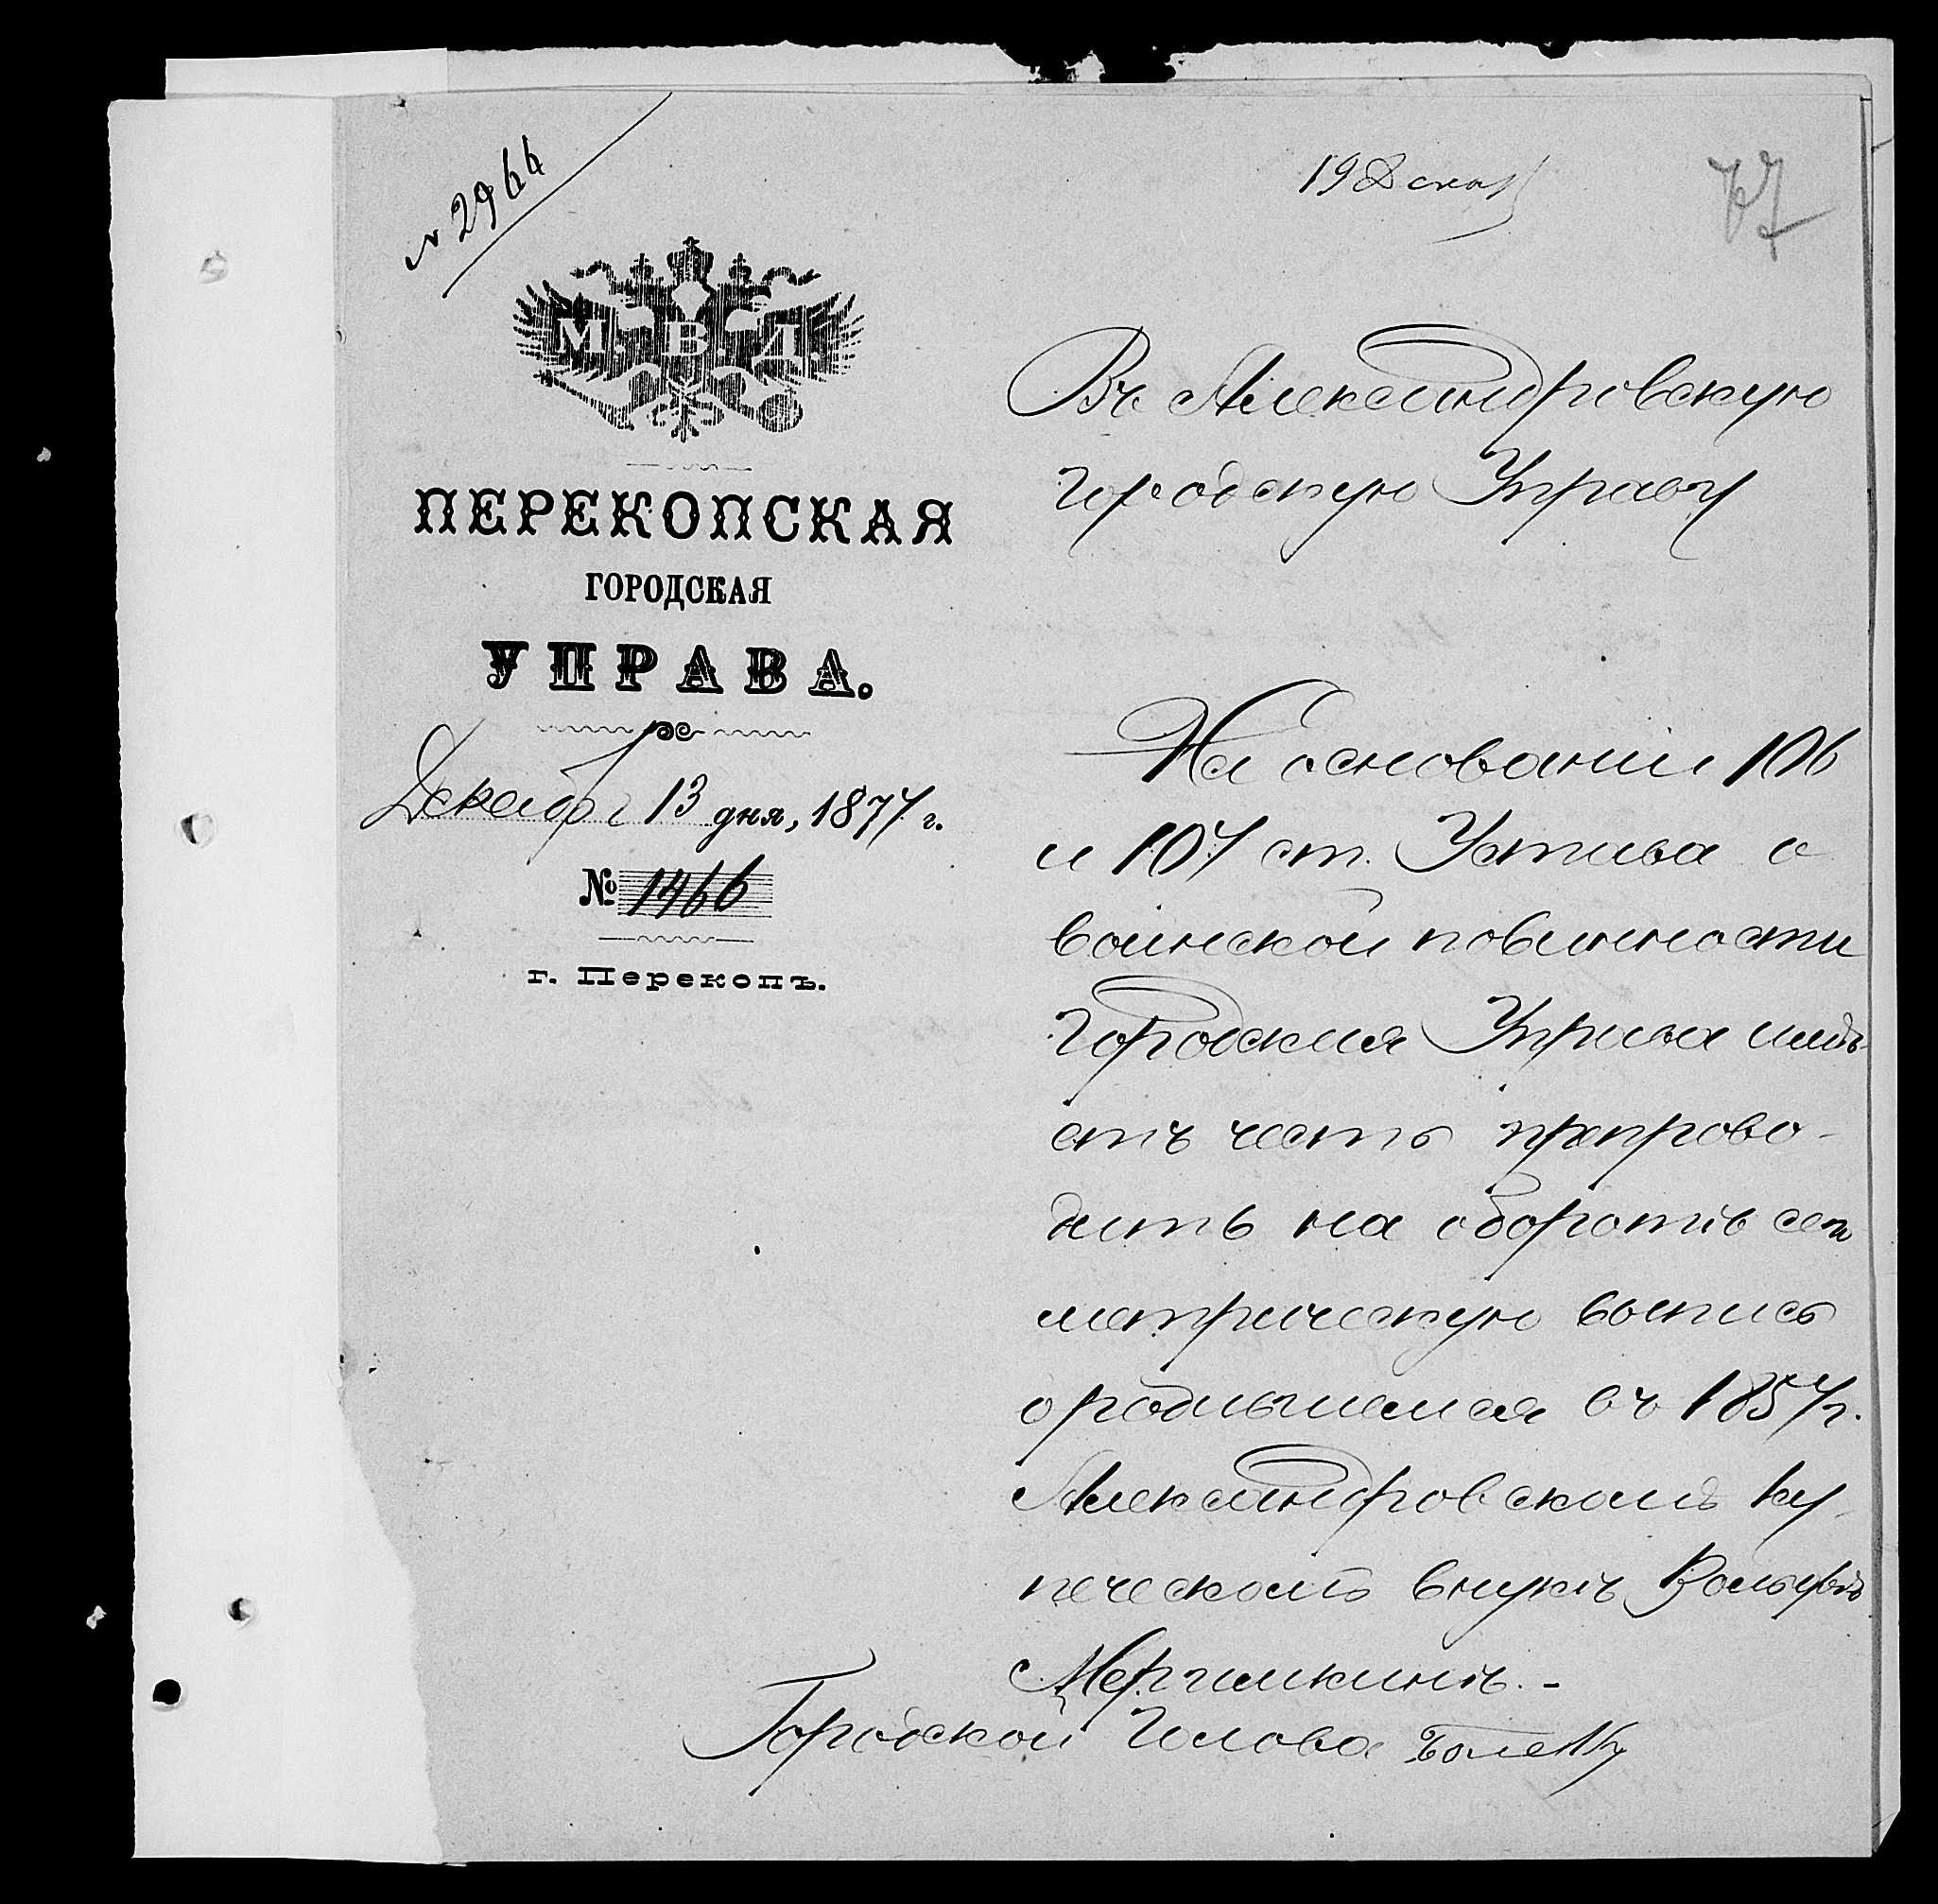 № 2966
19 Декаб
77
М. В. Д.
ПЕРЕКОПСКАЯ
ГОРОДСКАЯ
УПРАВА.
Декабря 13 дня, 1877 г.
№ 1466
г. Перекопъ.
Въ Александровскую
Городскую Управу
На основаніи 106
и 107 ст. Устава о
воинской повинности
Городская Управа имѣ-
етъ честь препрово-
дить на оборотѣ сего
метрическую выпись
о родившемся въ 1857 г.
Александровскомъ ку-
печескомъ внукѣ Вольфѣ
Мергимкинѣ.-
Городской Голова